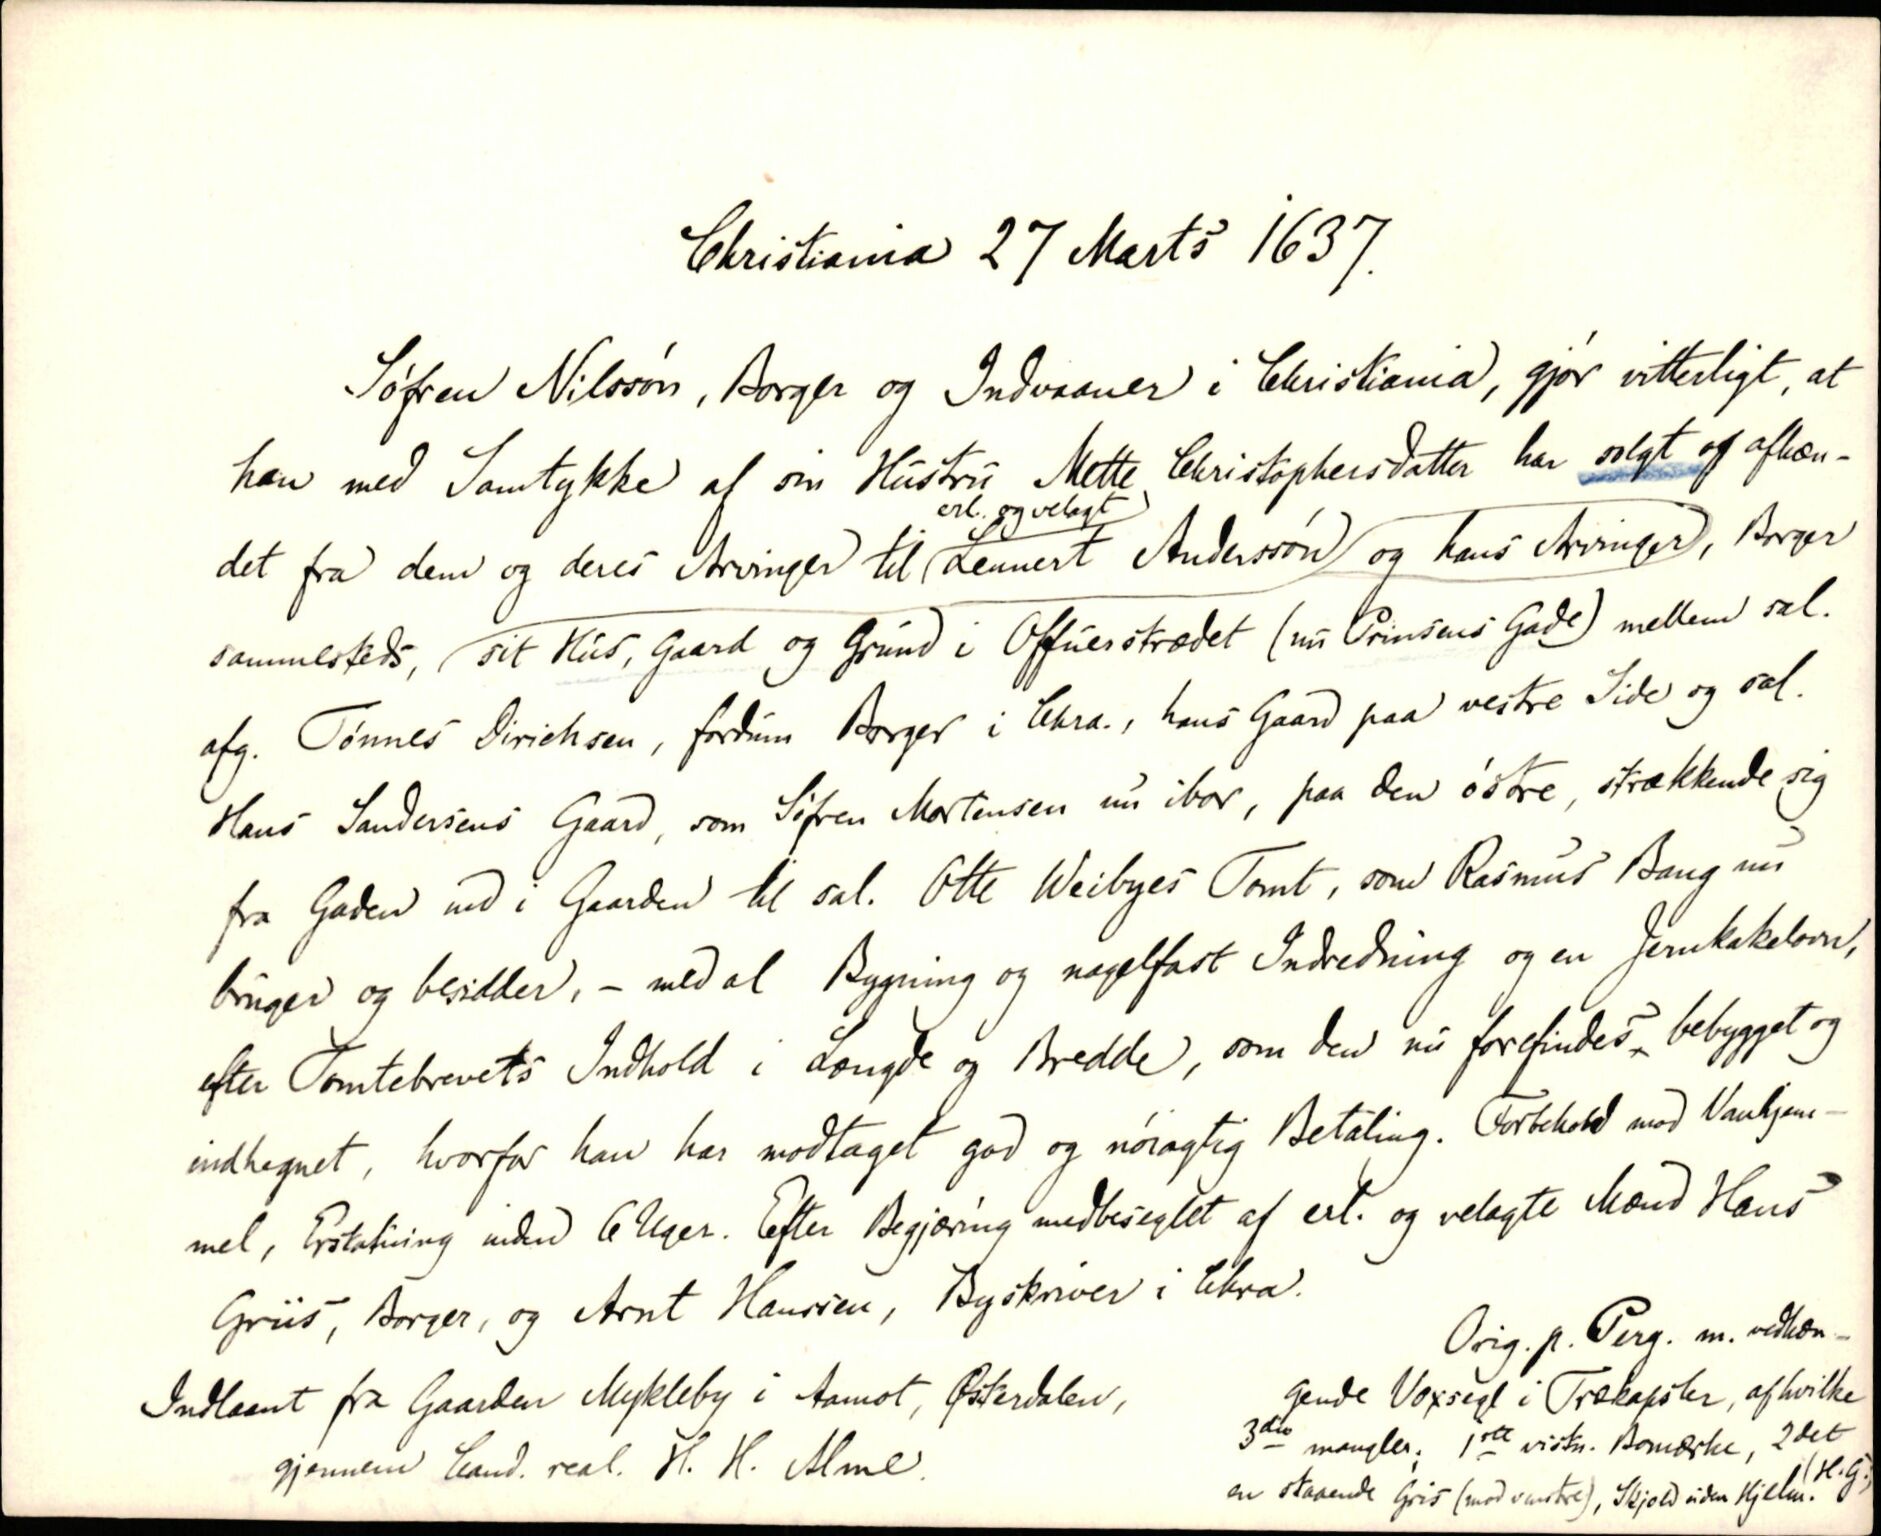 Christiania 27 Marts 1637.
Søfren Nilssøn, Borger og Indvaaner i Christiania, gjør vitterligt, at
han med Samtykke af sin Hustru Mette Christophersdatter har solgt og afhæn-
erl. og velagt
det fra dem og deres Arvinger til Lennert Anderssøn og hans Arvinger, Borger
sammesteds, sit Hus, Gaard og Grund i Offuerstrædet (nu Prinsens Gade) mellem sal.
afg. Tønnes Dirichsen, fordum Borger i Chra., hans Gaard paa vestre Side og sal.
Hans Sandersens Gaard, som Søfren Mortensen nu ibor, paa den østre, strækkende sig
fra Gaden ind i Gaarden til sal. Otte Weibyes Tomt, som Rasmus Bang nu
bruger og besidder, - med al Bygning og nagelfast Indredning og en Jernkakelovn,
efter Tomtebrevets Indhold i Længde og Bredde, som den nu forefindes bebygget og
indhegnet, hvorfor han har modtaget god og nøiagtig Betaling. Forbehold mod Vanhjem-
mel, Erstatning inden 6 Uger. Efter Begjæring medbeseglet af erl. og velagte Mænd Hans
Griis, Borger, og Arnt Hanssen, Byskriver i Chra.
Orig. p. Perg. m. vedhæn-
gende Voxsegl i Trækapsler, af hvilke
3die mangler; 1ste vistn. Bomærke, 2det
en staaende Gris (mod venstre), Skjold uden Hjelm. (H. G.)
Indlaant fra Gaarden Mykleby i Aamot, Østerdalen,
gjennem Cand. real. H. H. Alme.